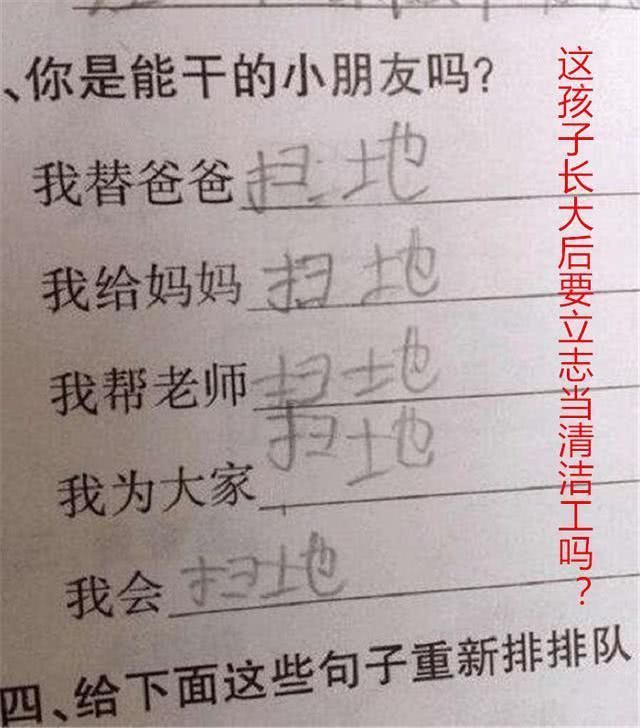 、你是能干的小朋友吗?
我替爸爸扫地
我给妈妈扫地
我帮老师扫地
我为大家扫地
我会扫地
四、给下面这些句子重新排排队
这孩子长大后要立志当清洁工吗?